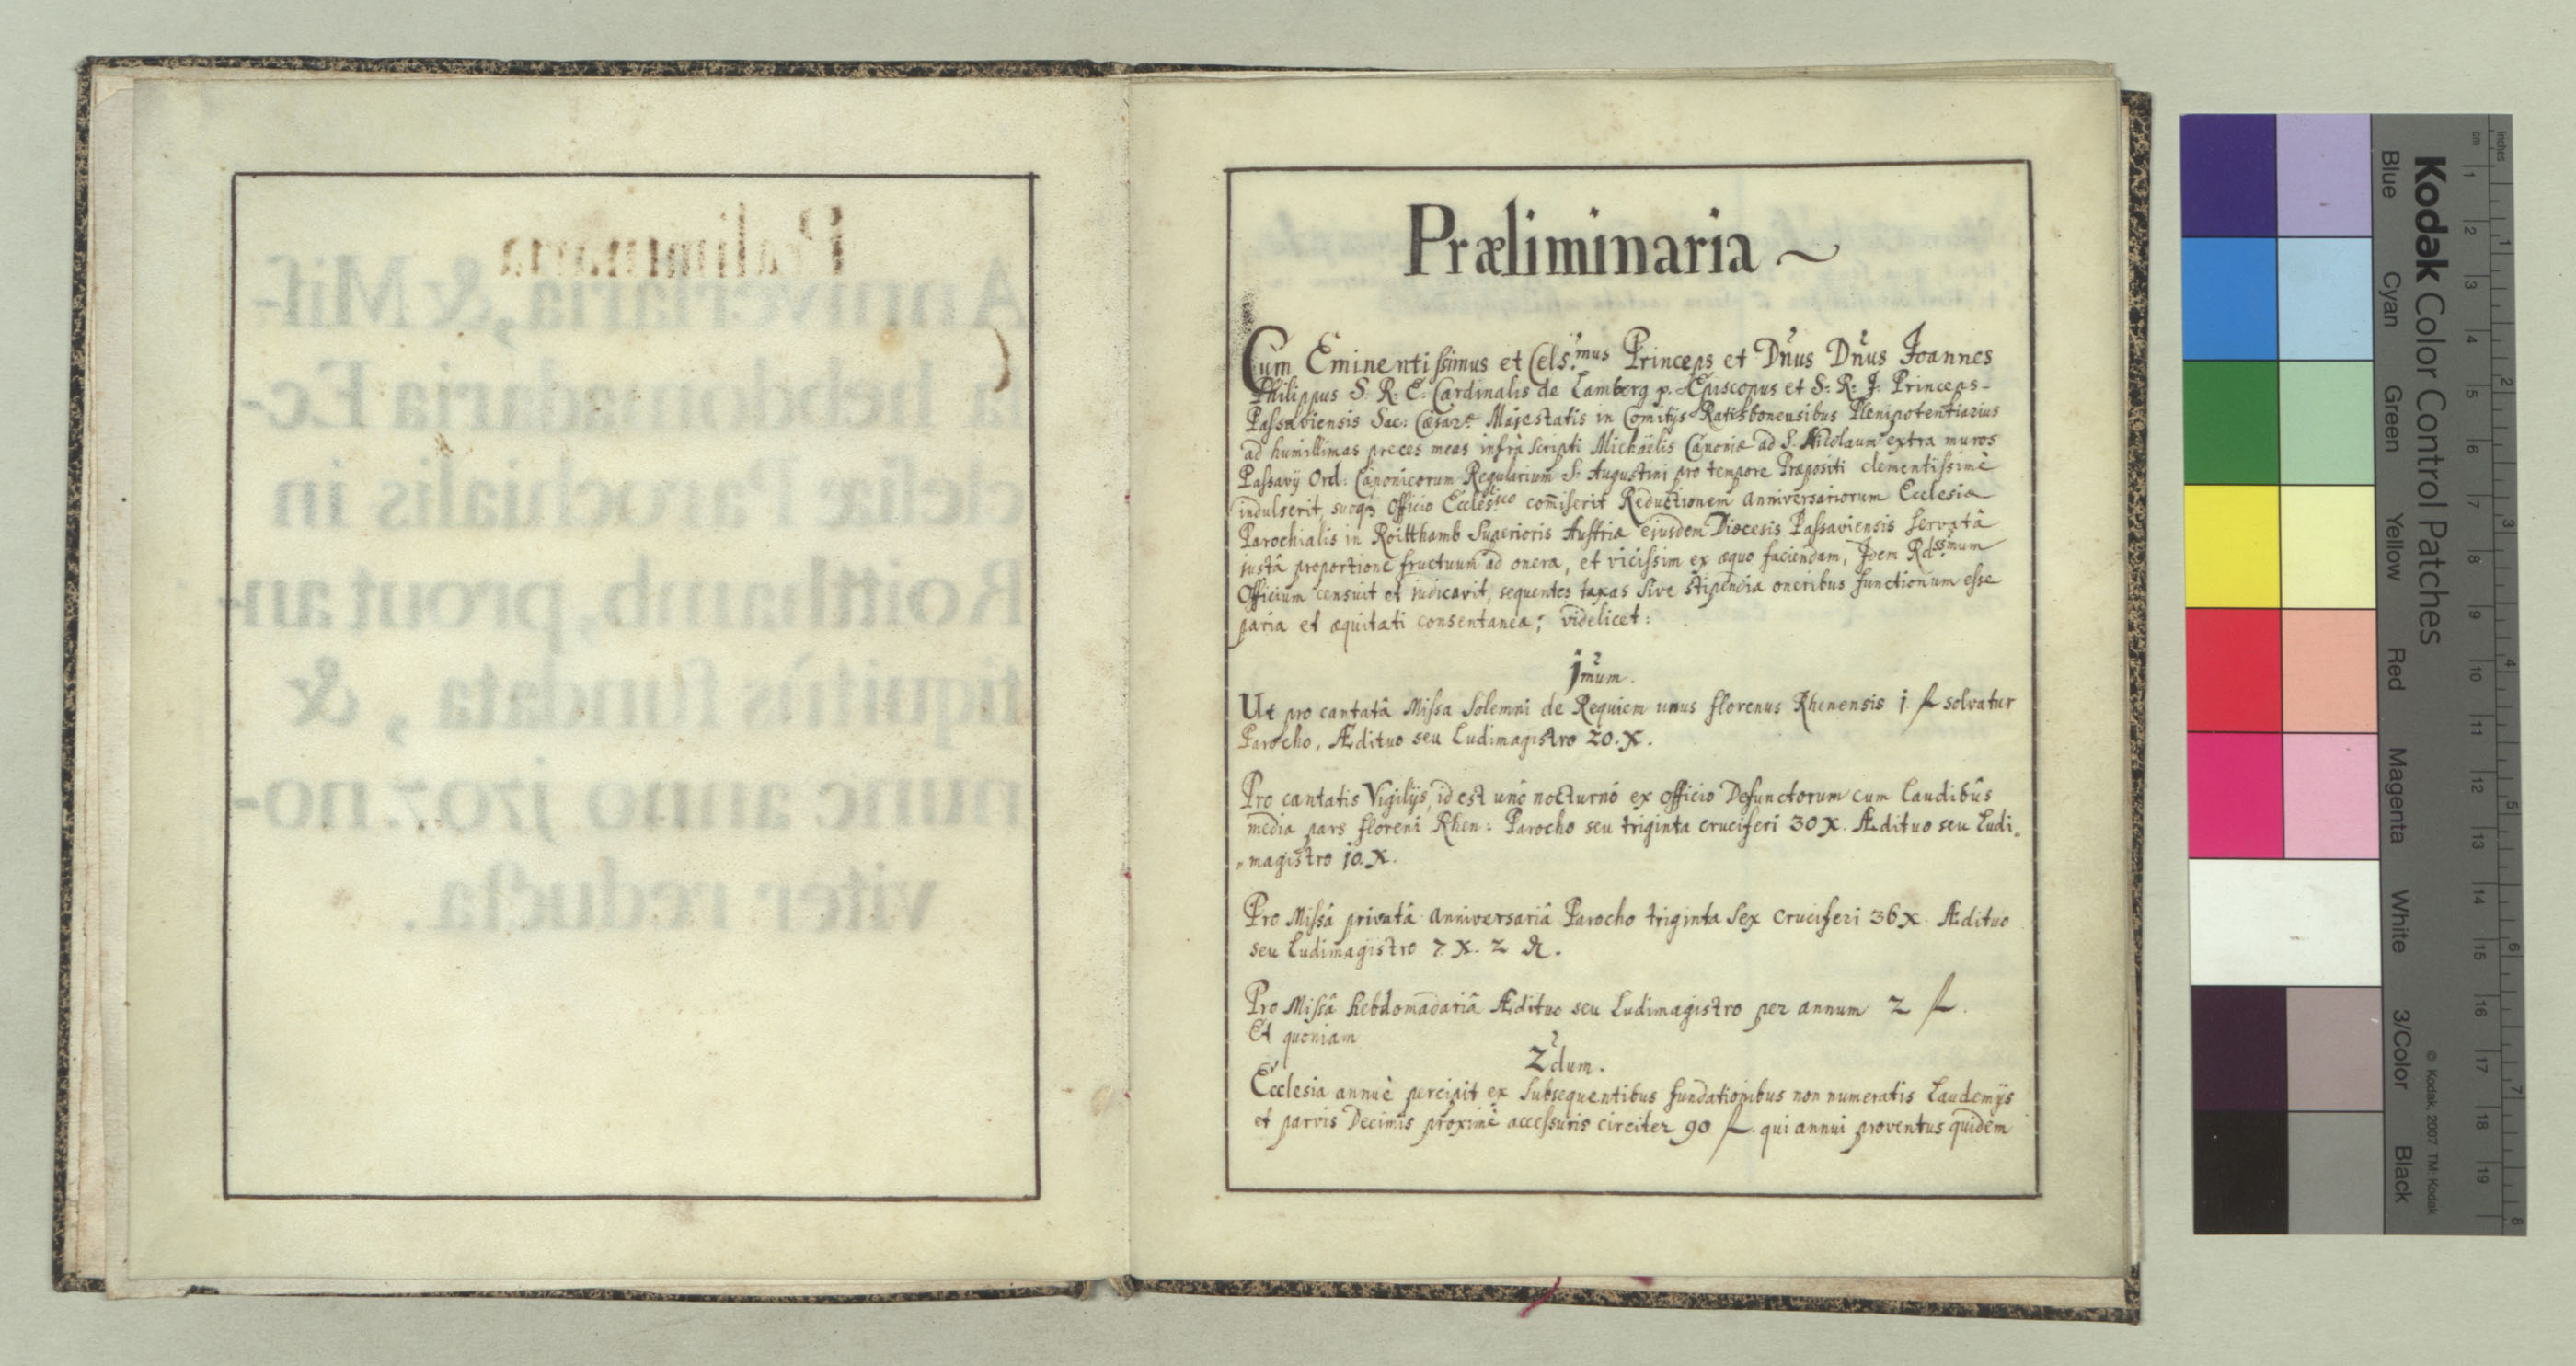 Anniversaria, & Mis-
sæ hebdomadariæ Ec-
clesiæ Parochialis in
Roitthamb, prout an-
tiquitùs fundata, &
nunc anno 1707. no-
vitèr reducta.
Præliminaria ~
Cum Eminentissimus et Cels:mus Princeps et Dnus Dnus Joannes
Philippus S. R. E. Cardinalis de Lamberg p. Episcopus et S. R. J. Princeps
Passaviensis Sac: Cæsar: Majestatis in Comitijs Ratisbonensibus Plenipotentiarius
ad humillimas preces meas infrà scripti Michaëlis Canoniæ ad S. Nicolaum extra muros
Passavij Ord: Canonicorum Regularium S: Augustini pro tempore Præpositi clementissimè
indulserit, suoq3 Officio Eccles:tico comiserit Reductionem anniversariorum Ecclesiæ
Parochialis in Roitthamb Superioris Austriæ ejusdem Diœcesis Passaviensis servatâ
justâ proportione fructuum ad onera, et vicissim ex æquo faciendam, Jdem Rdssmum
Officium censuit et judicavit, sequentes taxas sive stipendia oneribus functionum esse
paria et æquitati consentanea; videlicet:
1mum.
Ut pro cantatâ Missa Solemni de Requiem unus florenus Rhenensis 1 fl solvatur
Parocho, Ædituo seu Ludimagistro 20. X.
Pro cantatis Vigilijs, id est unô nocturnô ex officio Defunctorum cum Laudibûs
media pars floreni Rhen: Parocho seu triginta cruciferi 30 X. Ædituo seu Ludi„
„magistro 10. X.
Pro Missâ privatâ anniversariâ Parocho triginta sex cruciferi 36 X. Ædituo
seu Ludimagistro 7. X. 2 ₰.
Pro Missâ hebdomadariâ Ædituo seu Ludimagistro per annum 2 fl.
Et quoniam
2dum.
Ecclesia annuè percipit ex subsequentibus fundationibus non numeratis Laudemijs
et parvis Decimis proximè accessuris circiter 90 fl. qui annui proventus quidem
Kodak Color Control Patches
Blue Cyan Green Yellow Red Magenta White 3/Color Black
© Kodak, 2007 TM: Kodak
inches 1 2 3 4 5 6 7 8
cm 1 2 3 4 5 6 7 8 9 10 11 12 13 14 15 16 17 18 19